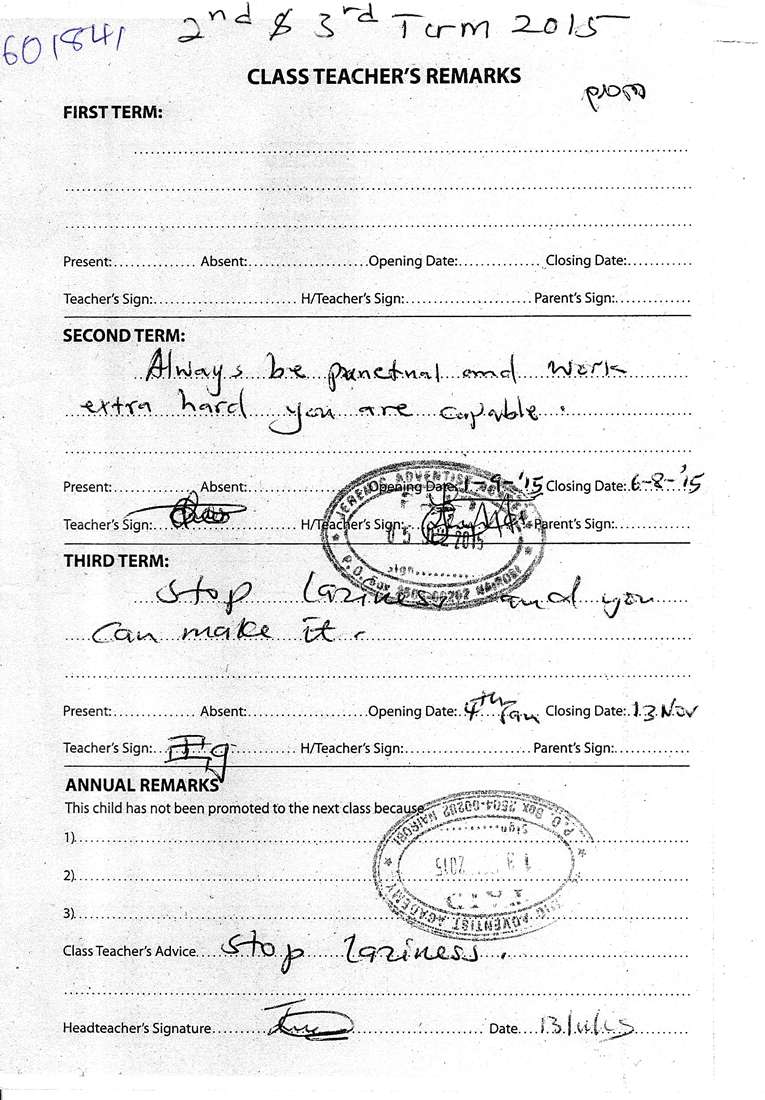 601841
2nd & 3rd Term 2015
CLASS TEACHER'S REMARKS
FIRST TERM:
Present: Absent: Opening Date: Closing Date:
Teacher's Sign: H/Teacher's Sign: Parent's Sign:
SECOND TERM:
Always be punctual and work
extra hard you are capable.
Present: Absent: Opening Date: 1-9-'15 Closing Date: 6-8-'15
Teacher's Sign: H/Teacher's Sign: Parent's Sign:
ADVENTIST
2015
Sign
P.O. Box NAIROBI
THIRD TERM:
Stop laziness and you
can make it.
Present: Absent: Opening Date: 4th Jan Closing Date: 13 Nov
Teacher's Sign: H/Teacher's Sign: Parent's Sign:
ANNUAL REMARKS
This child has not been promoted to the next class because
1)
2)
3)
P.O. BOX 2504-00202 NAIROBI
Sign
2015
PAID
ADVENTIST ACADEMY
Class Teacher's Advice Stop laziness.
Headteacher's Signature Date 13/11/15